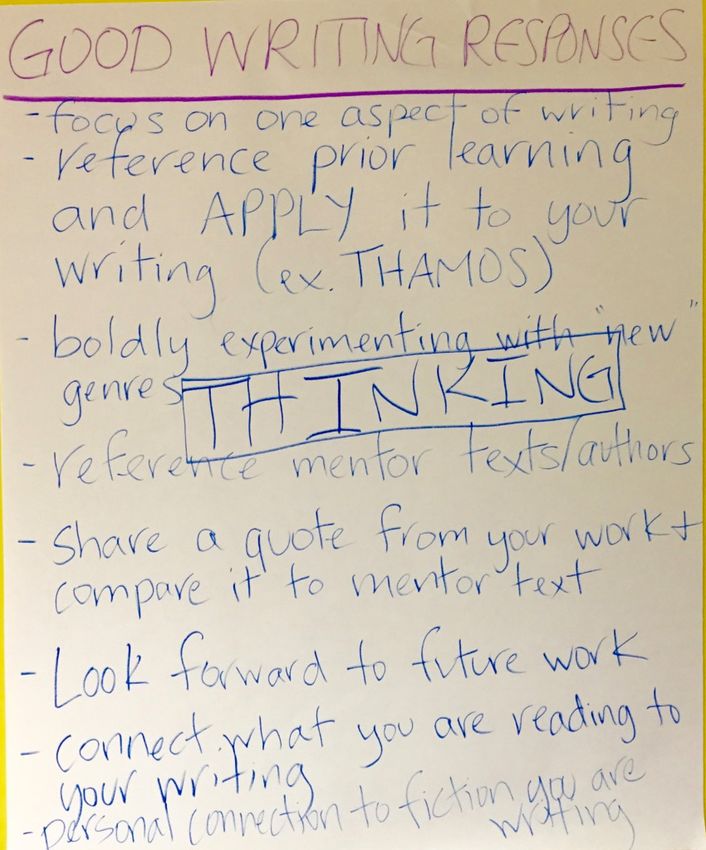 GOOD WRITING RESPONSES
- focus on one aspect of writing
- reference prior learning
and APPLY it to your
writing (ex. THAMOS)
- boldly experimenting with "new"
genres
THINKING
- reference mentor texts/authors
- Share a quote from your work +
compare it to mentor text
- Look forward to future work
- connect what you are reading to
your writing
- personal connection to fiction you are
writing